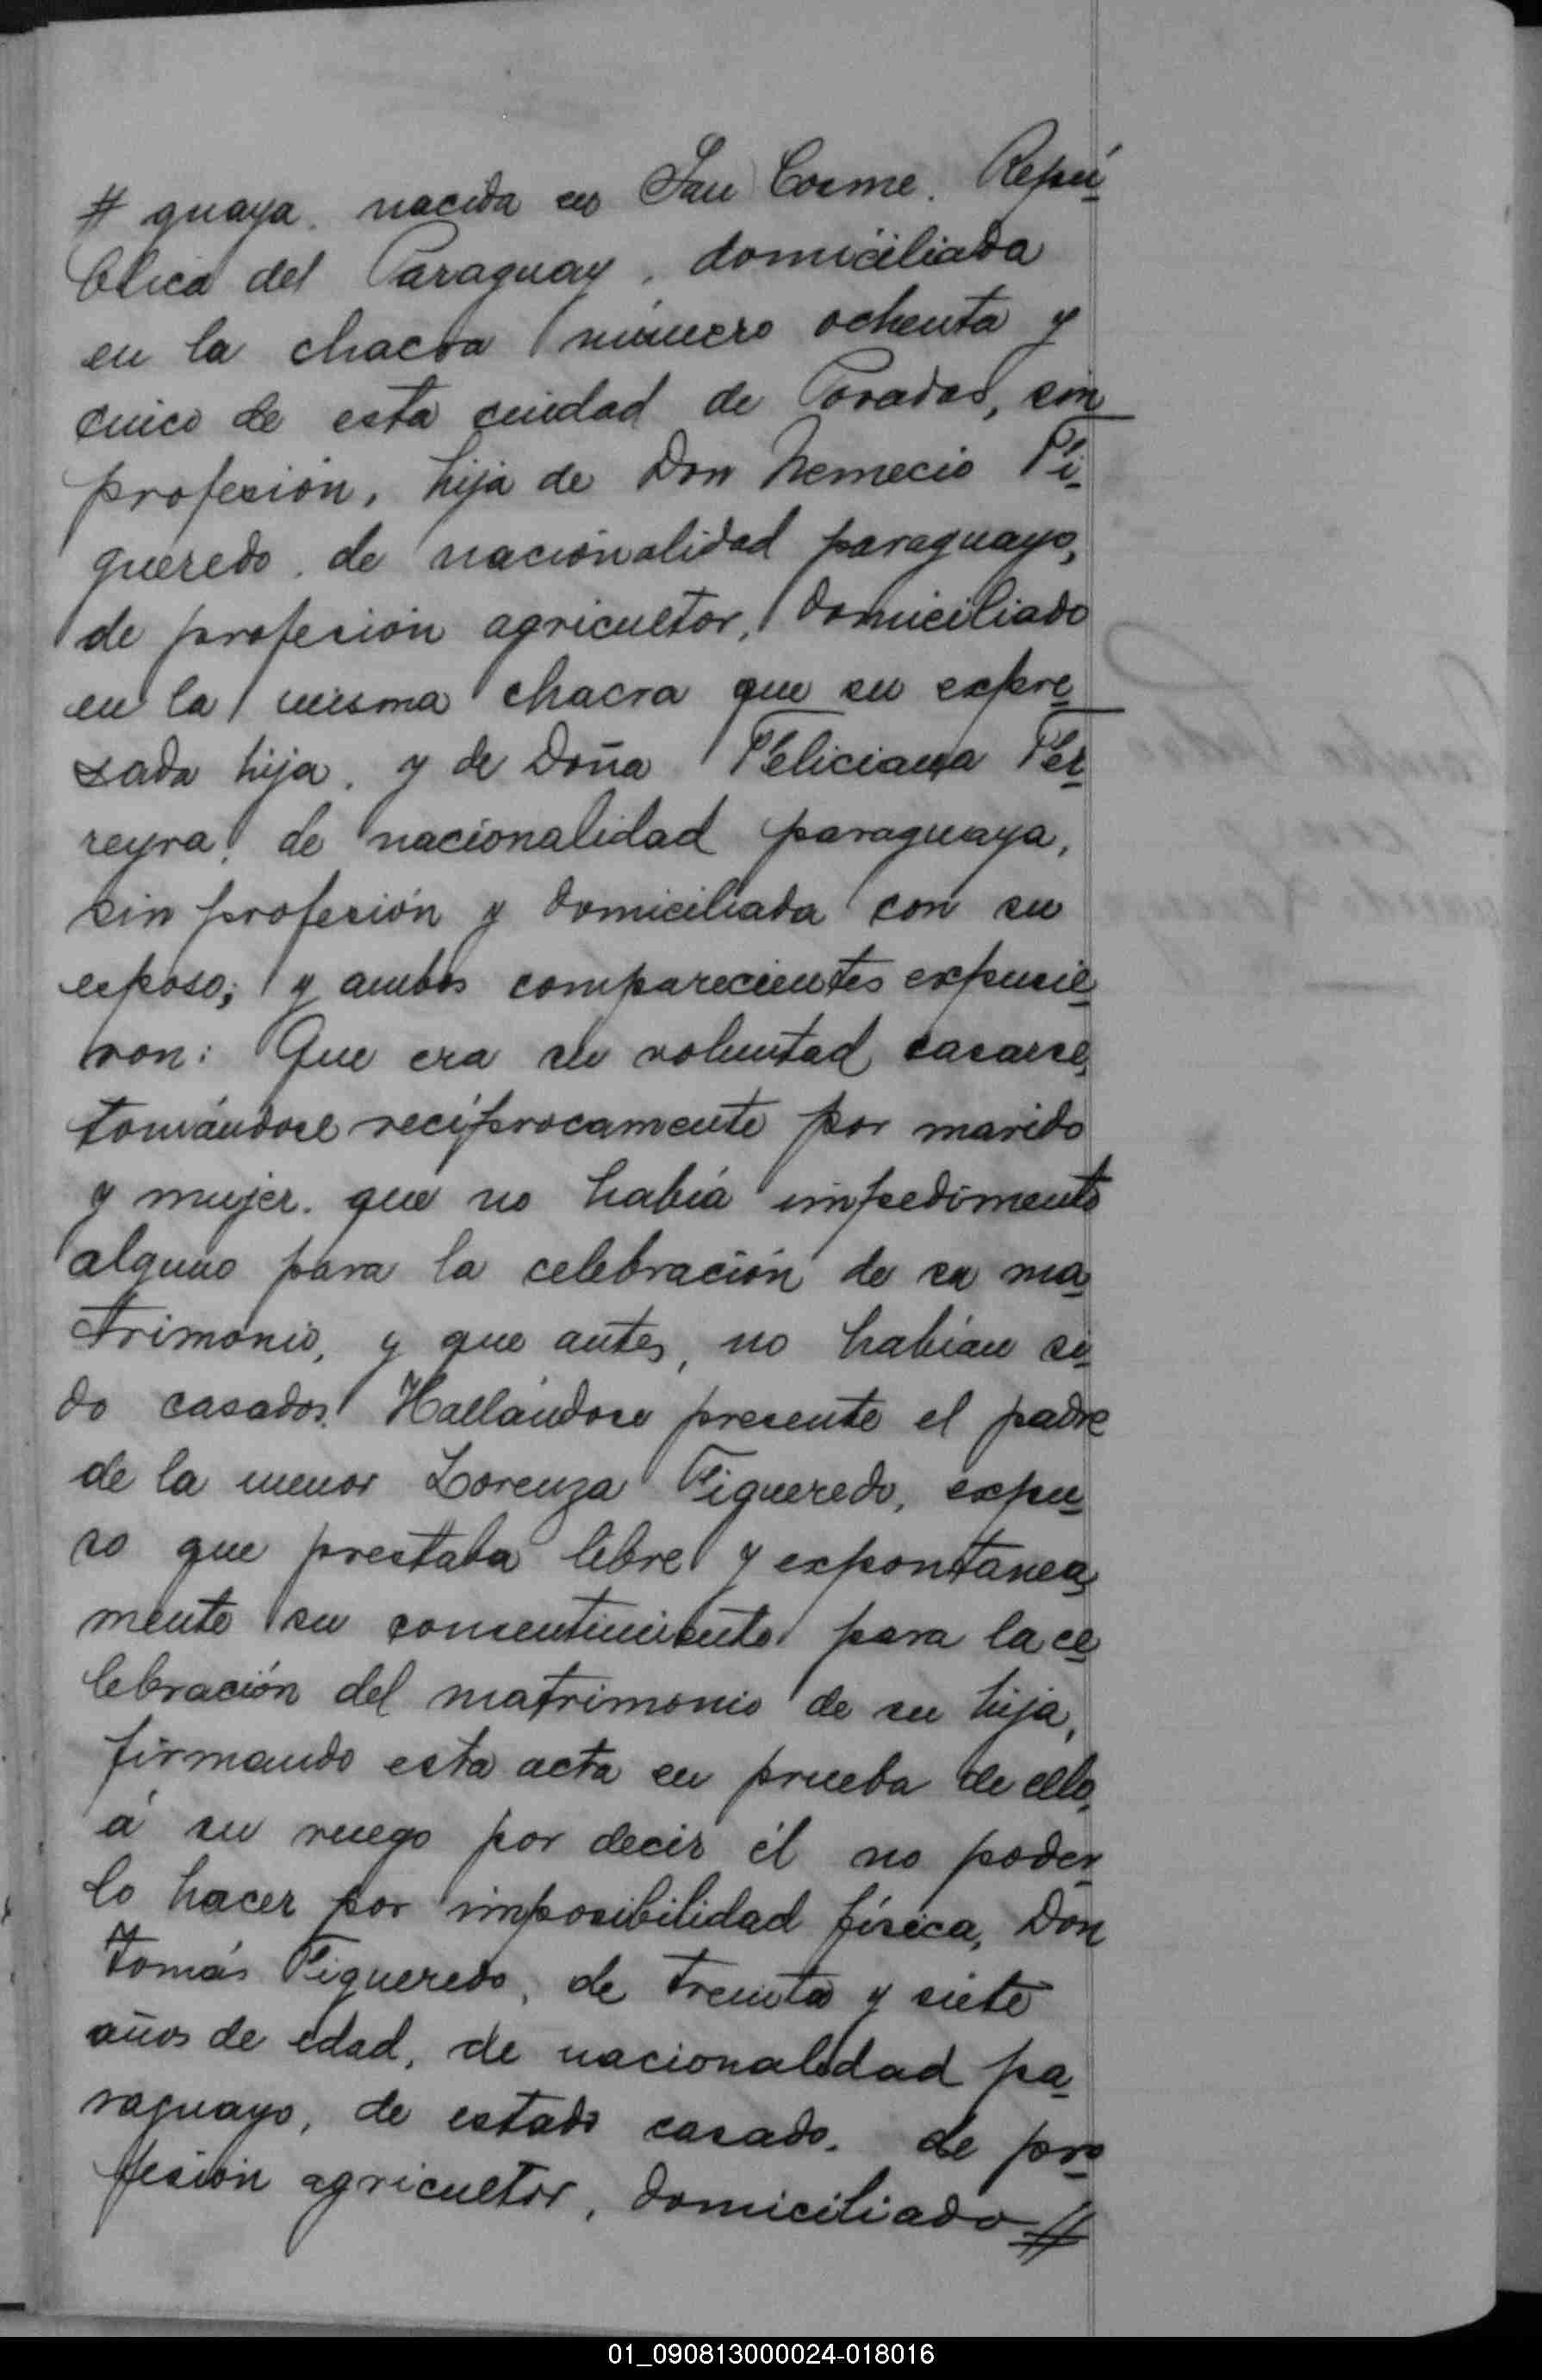 # guaya, nacida en San Cosme, Repú-
blica del Paraguay, domiciliada
en la chacra número ochenta y
cinco de esta ciudad de Posadas, sin
profesión, hija de Don Nemecio Fi-
gueredo, de nacionalidad paraguayo,
de profesión agricultor, domiciliado
en la misma chacra que su expre-
sada hija, y de Doña Feliciana Fer-
reyra, de nacionalidad paraguaya,
sin profesión y domiciliada con su
esposo; y ambos comparecientes expusie-
ron: Que era su voluntad casarse,
tomándose recíprocamente por marido
y mujer, que no había impedimento
alguno para la celebración de su ma-
trimonio, y que antes, no habían si-
do casados. Hallándose presente el padre
de la menor Lorenza Figueredo, expu-
so que prestaba libre y expontanea-
mente su consentimiento para la ce-
lebración del matrimonio de su hija,
firmando esta acta en prueba de ello,
á su ruego por decir él no poder-
lo hacer por imposibilidad física, Don
Tomás Figueredo, de treinta y siete
años de edad, de nacionalidad pa-
raguayo, de estado casado, de pro-
fesión agricultor, domiciliado #
01_090813000024-018016